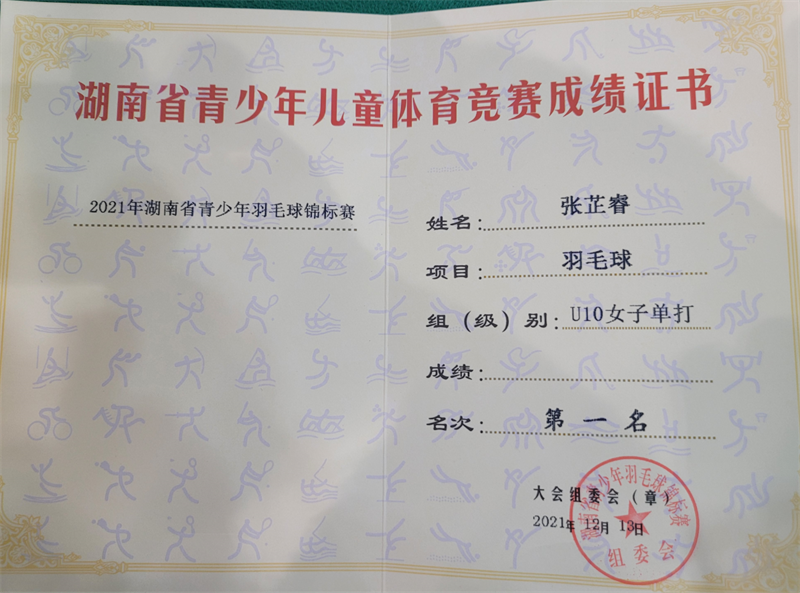 湖南省青少年儿童体育竞赛成绩证书
2021年湖南省青少年羽毛球锦标赛
姓名：张芷睿
项目：羽毛球
组（级）别：U10女子单打
成绩：
名次：第一名
大会组委会（章）
2021年12月13日
湖南省青少年羽毛球锦标赛
组委会